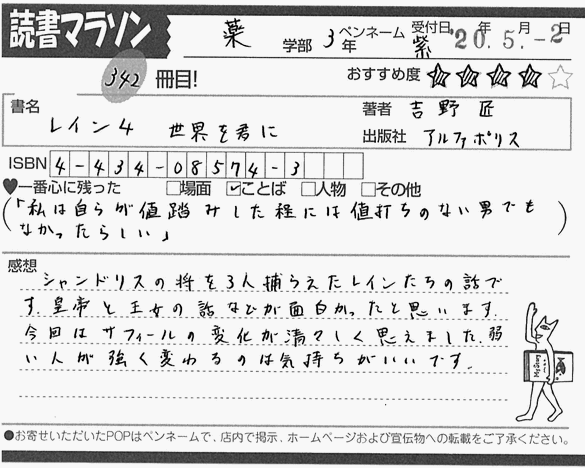 読書マラソン 薬学部 3年 ペンネーム 紫 受付日 '20年.5月.-2日
342冊目! おすすめ度 ★★★★☆
書名 レイン4 世界を君に
著者 吉野 匠
出版社 アルファポリス
ISBN 4-434-08574-3
♥一番心に残った □場面 ☑ことば □人物 □その他
(「私は自らが値踏みした程には値打ちのない男でも
なかったらしい」)
感想
シャンドリスの将を3人捕らえたレインたちの話で
す.皇帝と王女の話などが面白かったと思います.
今回はサフィールの変化が清々しく思えました.弱
い人が強く変わるのは気持ちがいいです.
●お寄せいただいたPOPはペンネームで、店内で掲示、ホームページおよび宣伝物への転載をご了承ください。